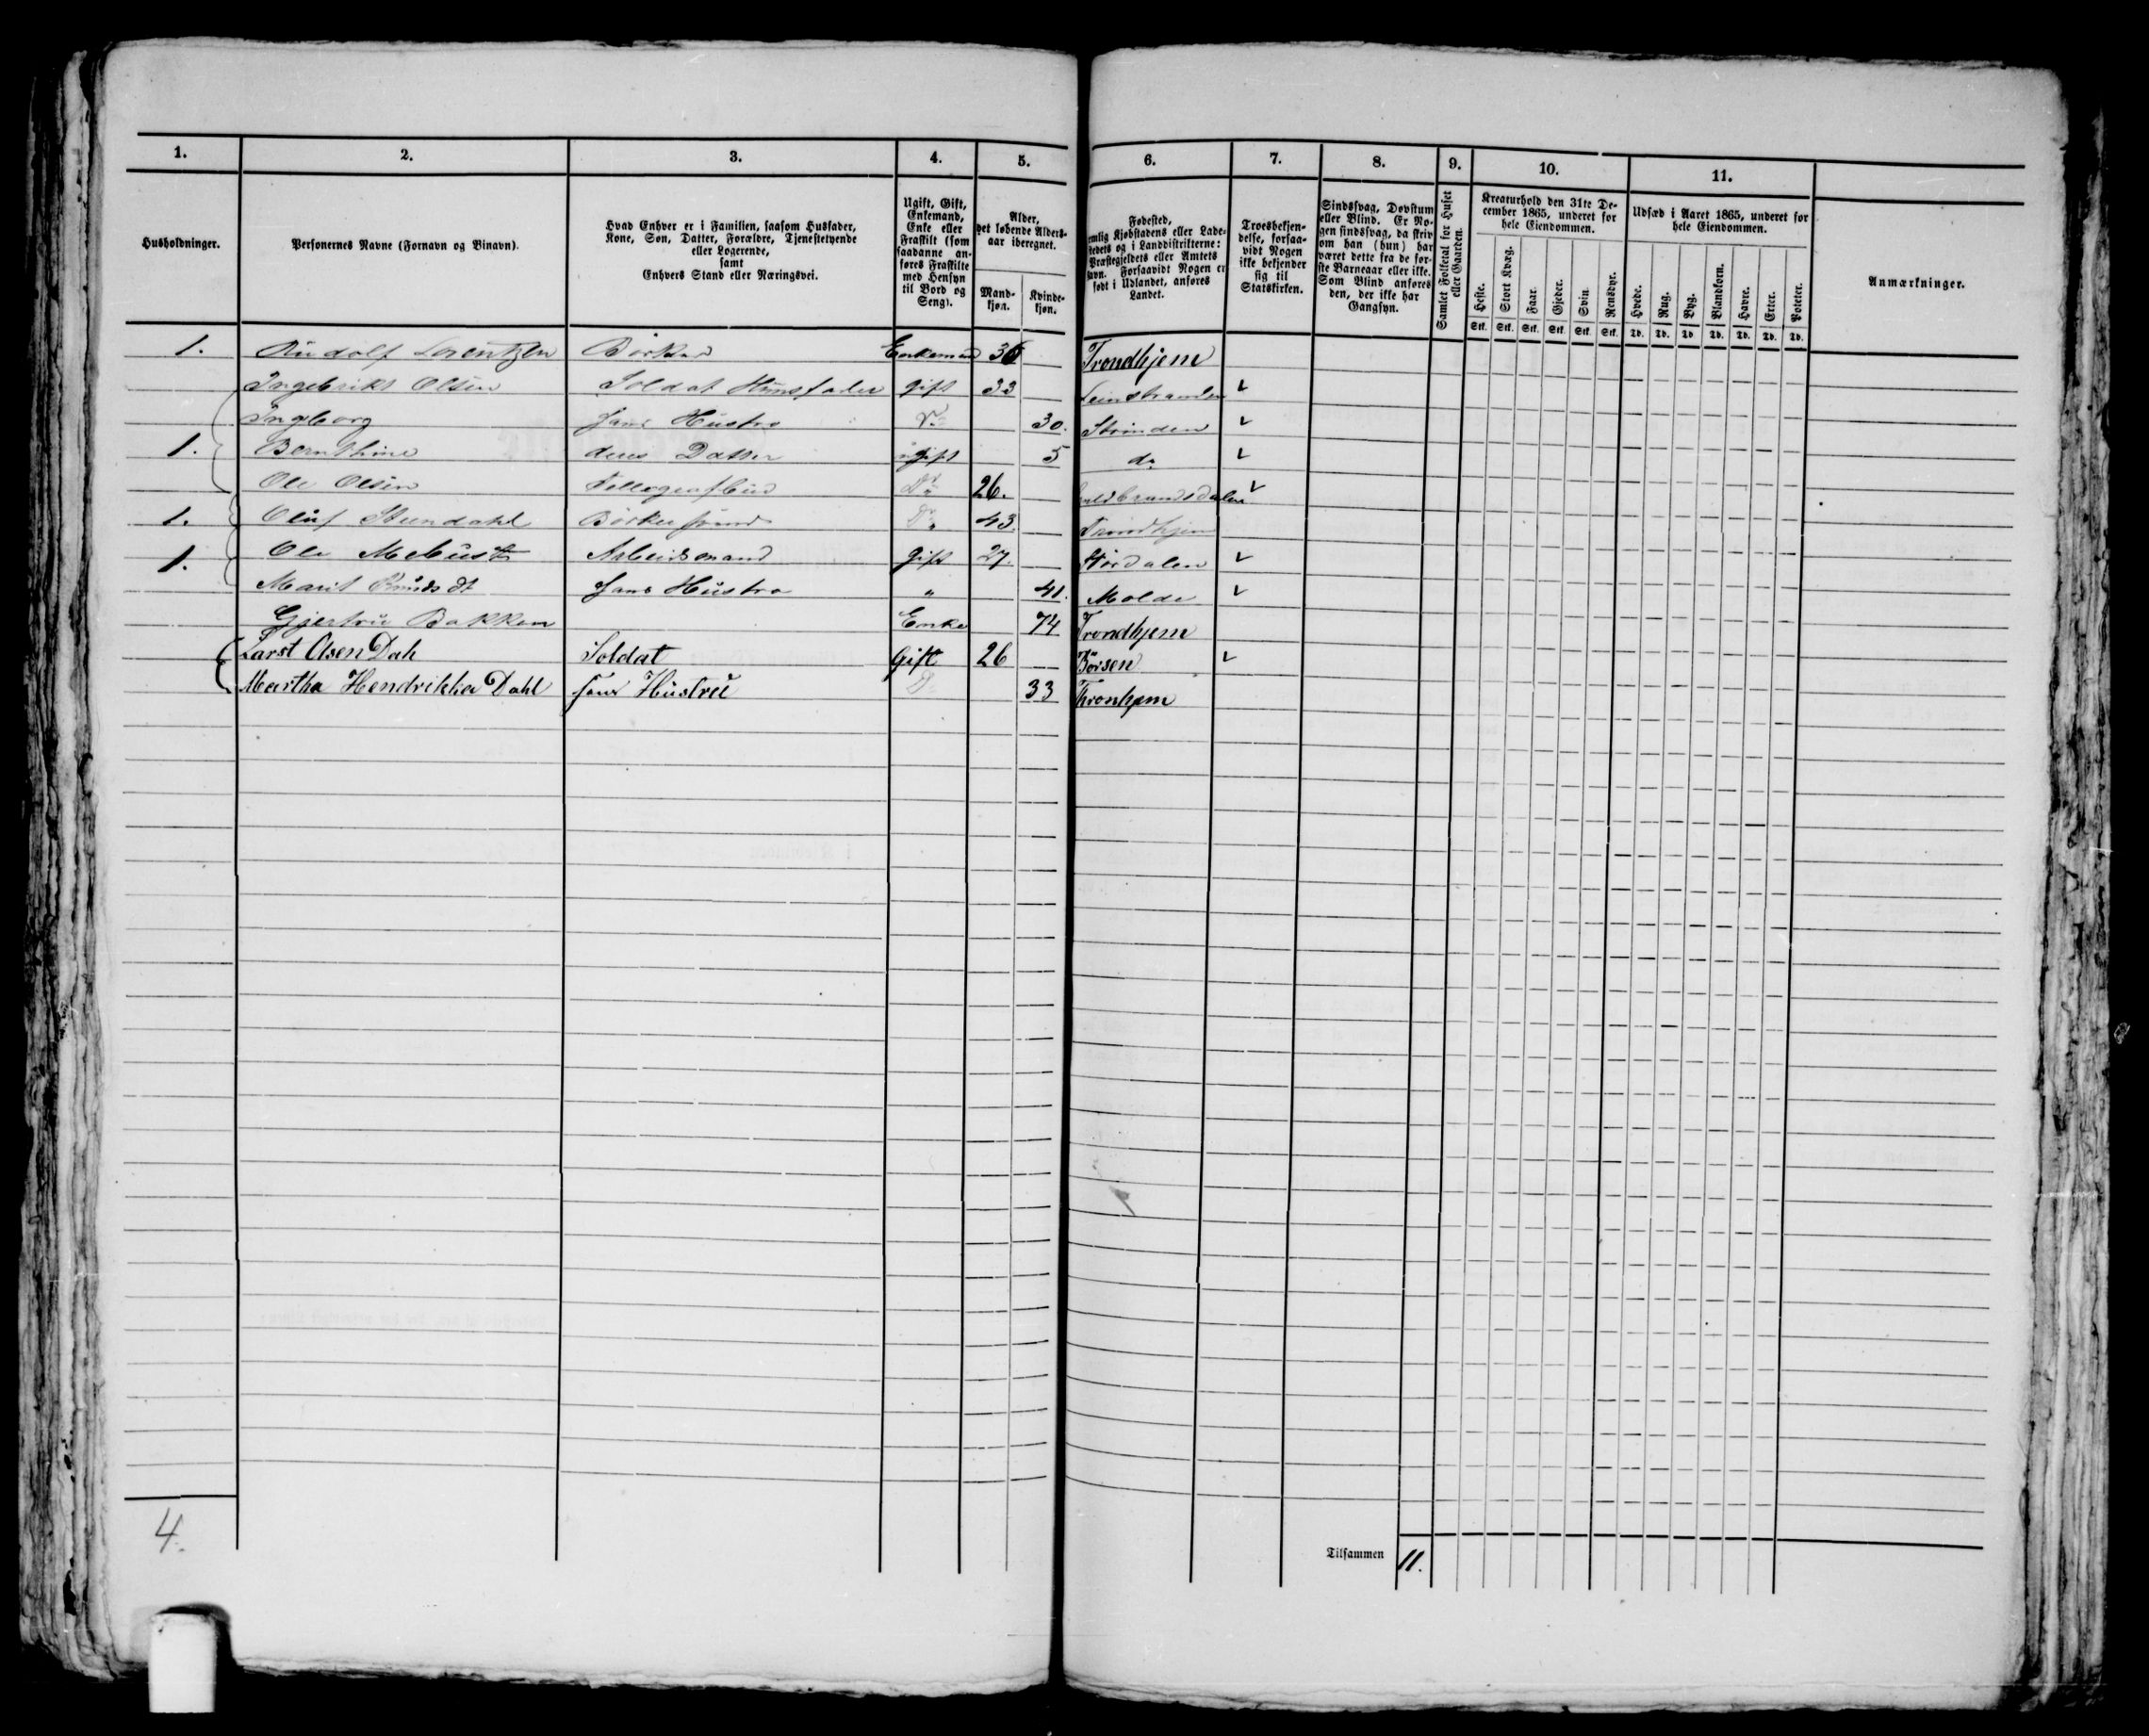 1. 2. 3. 4. 5. 6. 7. 8. 9. 10. 11.
Husholdninger.
Personernes Navne (Fornavn og Binavn).
Hvad Enhver er i Familien, saasom Husfader,
Kone, Søn, Datter, Forældre, Tjenestetyende
eller Logerende,
samt
Enhvers Stand eller Næringsvei.
Ugift, Gift,
Enkemand,
Enke eller
Fraskilt (som
saadanne an-
føres Fraskilte
med Hensyn
til Bord og
Seng).
Alder,
det løbende Alders-
aar iberegnet.
Mand-
kjøn.
Kvinde-
kjøn.
Fødested,
nemlig Kjøbstadens eller Lade-
stedets og i Landdistrikterne:
Præstegjeldets eller Amtets
Navn. Forsaavidt Nogen er
født i Udlandet, anføres
Landet.
Troesbekjen-
delse, forsaa-
vidt Nogen
ikke bekjender
sig til
Statskirken.
Sindssvag, Døvstum
eller Blind. Er No-
gen sindssvag, da skriv
om han (hun) har
været dette fra de før-
ste Barneaar eller ikke.
Som Blind anføres
den, der ikke har
Gangsyn.
Samlet Folketal for Huset
eller Gaarden.
Kreaturhold den 31te De-
cember 1865, underet for
hele Eiendommen.
Heste. Stort Kvæg. Faar. Gjeder. Svin. Rensdyr.
Stk. Stk. Stk. Stk. Stk. Stk.
Udsæd i Aaret 1865, underet for
hele Eiendommen.
Hvede. Rug. Byg. Blandkorn. Havre. Erter. Poteter.
Td. Td. Td. Td. Td. Td. Td.
Anmærkninger.
1. Rudolf Lorentzen Bødker Enkemand 36 Trondhjem
Ingebrikt Olsen Soldat Huusfader gift 33 Leinstranden
Ingborg Hans Hustro Do 30. Strinden
1. Bernthine deres Datter ugift 5 do
Ole Olsen Tellegrafbud Do 26. Guldbrandsdalen
1. Oluf Steendahl Bødkersvend Do 43. Trondhjem
1. Ole Mebust Arbeidsmand gift 27. Størdalen
Marit Knudsdt Hans Hustro " 41. Molde
Gjertru Bakken Enke 74 Trondhjem
Larst Olsen Dah Soldat Gift 26 Børsen
Martha Hendrikka Dahl hans Hustru D 33 Thronhjem
4.
Tilsammen 11.